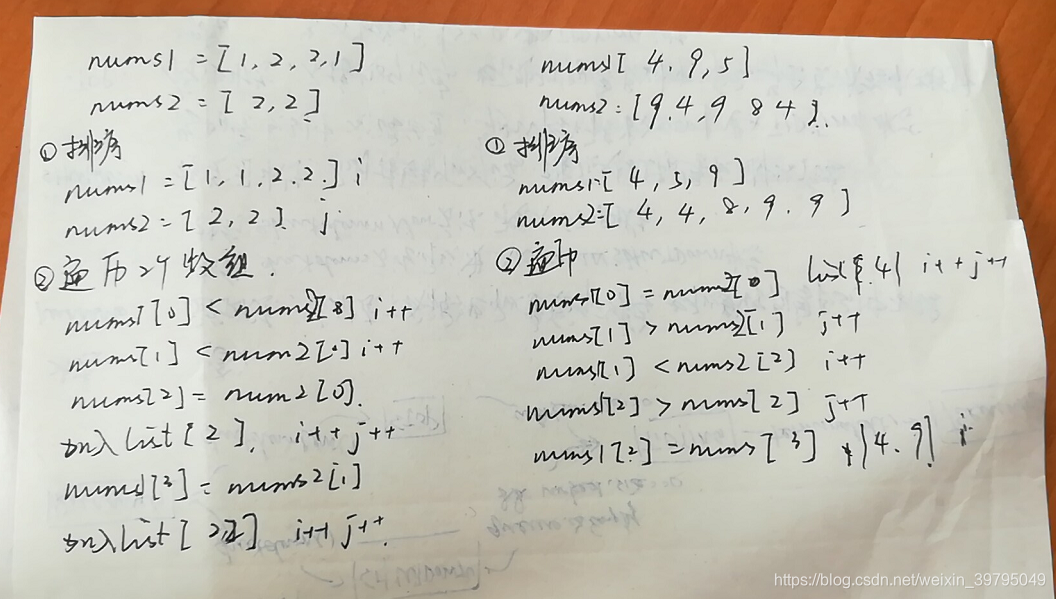 nums1 = [1, 2, 2, 1]
nums2 = [ 2, 2 ]
① 排序
nums1 = [1, 1, 2, 2] i
nums2 = [ 2, 2 ] j
② 遍历2个数组.
nums1[0] < nums2[0] i++
nums[1] < num2[0] i++
nums[2] = num2[0].
加入list[2]. i++ j++
nums1[3] = nums2[1]
加入list[ 2,2] i++ j++.
nums1[ 4, 9, 5 ]
nums2 = [9.4, 9 8 4 ].
① 排序
nums1=[ 4, 5, 9 ]
nums2=[ 4, 4, 8, 9. 9 ]
② 遍历
nums1[0] = nums2[0] list[4] i++ j++
nums[1] > nums2[1] j++
nums1[1] < nums2[2] i++
nums1[2] > nums[2] j++
nums1[2] = nums[3] [4. 9]
https://blog.csdn.net/weixin_39795049